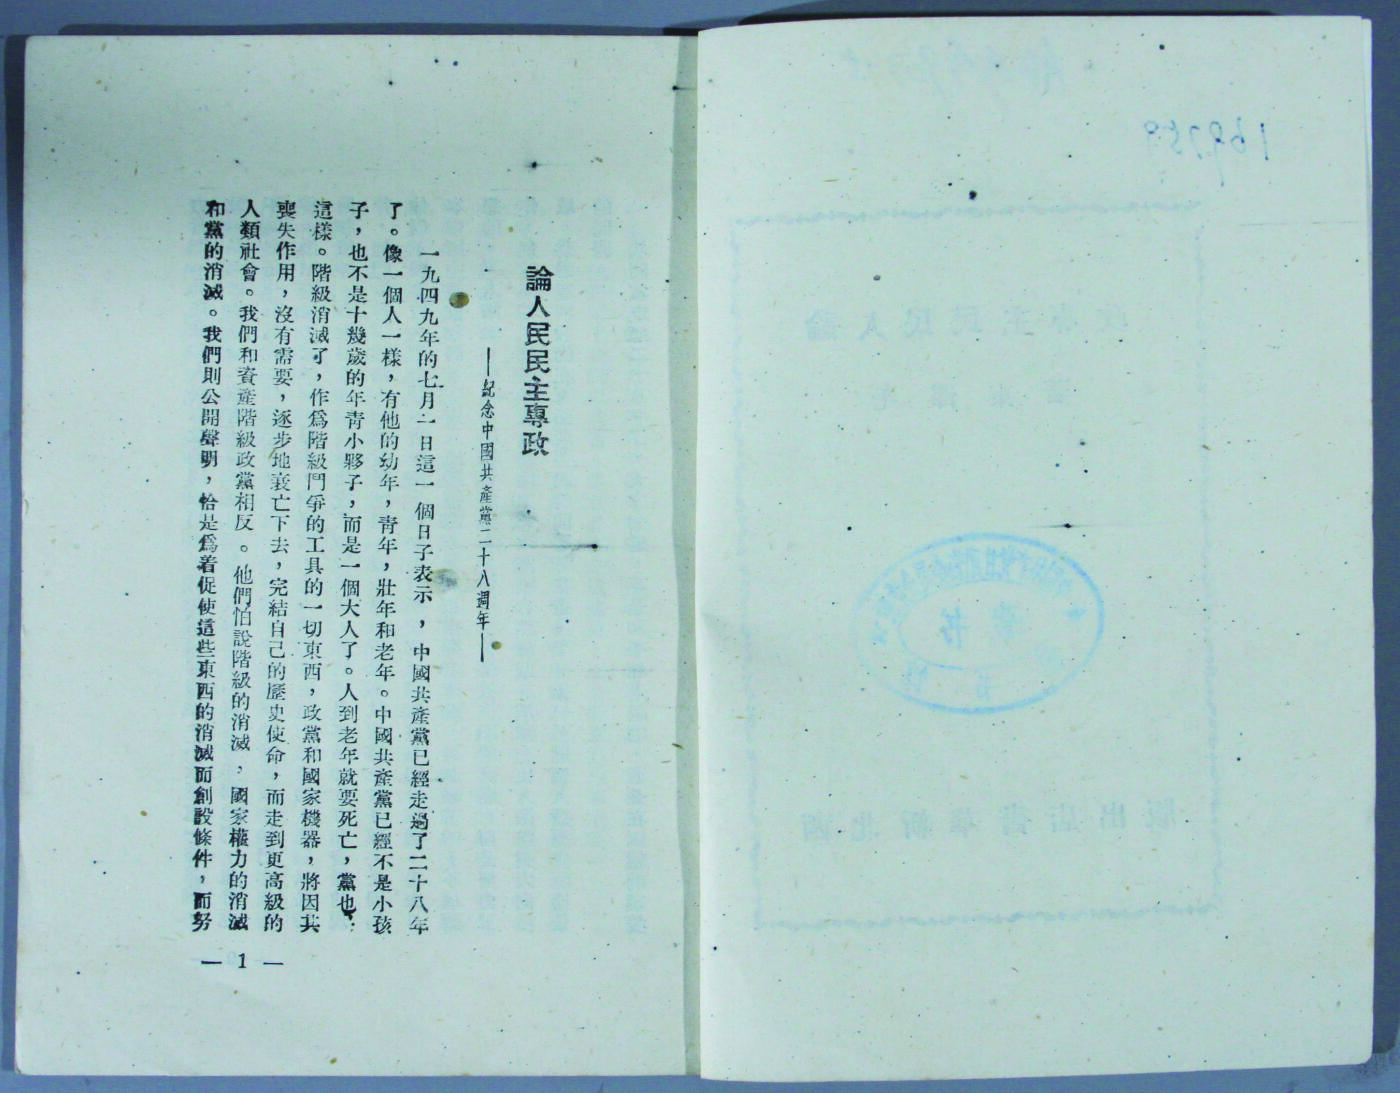 論人民民主專政
——紀念中國共產黨二十八週年——
一九四九年的七月一日這一個日子表示，中國共產黨已經走過了二十八年
了。像一個人一樣，有他的幼年，青年，壯年和老年。中國共產黨已經不是小孩
子，也不是十幾歲的年青小夥子，而是一個大人了。人到老年就要死亡，黨也
這樣。階級消滅了，作爲階級鬥爭的工具的一切東西，政黨和國家機器，將因其
喪失作用，沒有需要，逐步地衰亡下去，完結自己的歷史使命，而走到更高級的
人類社會。我們和資產階級政黨相反。他們怕說階級的消滅，國家權力的消滅
和黨的消滅。我們則公開聲明，恰是爲着促使這些東西的消滅而創設條件，而努
— 1 —
169759
論人民民主專政
毛澤東著
西北新華書店出版